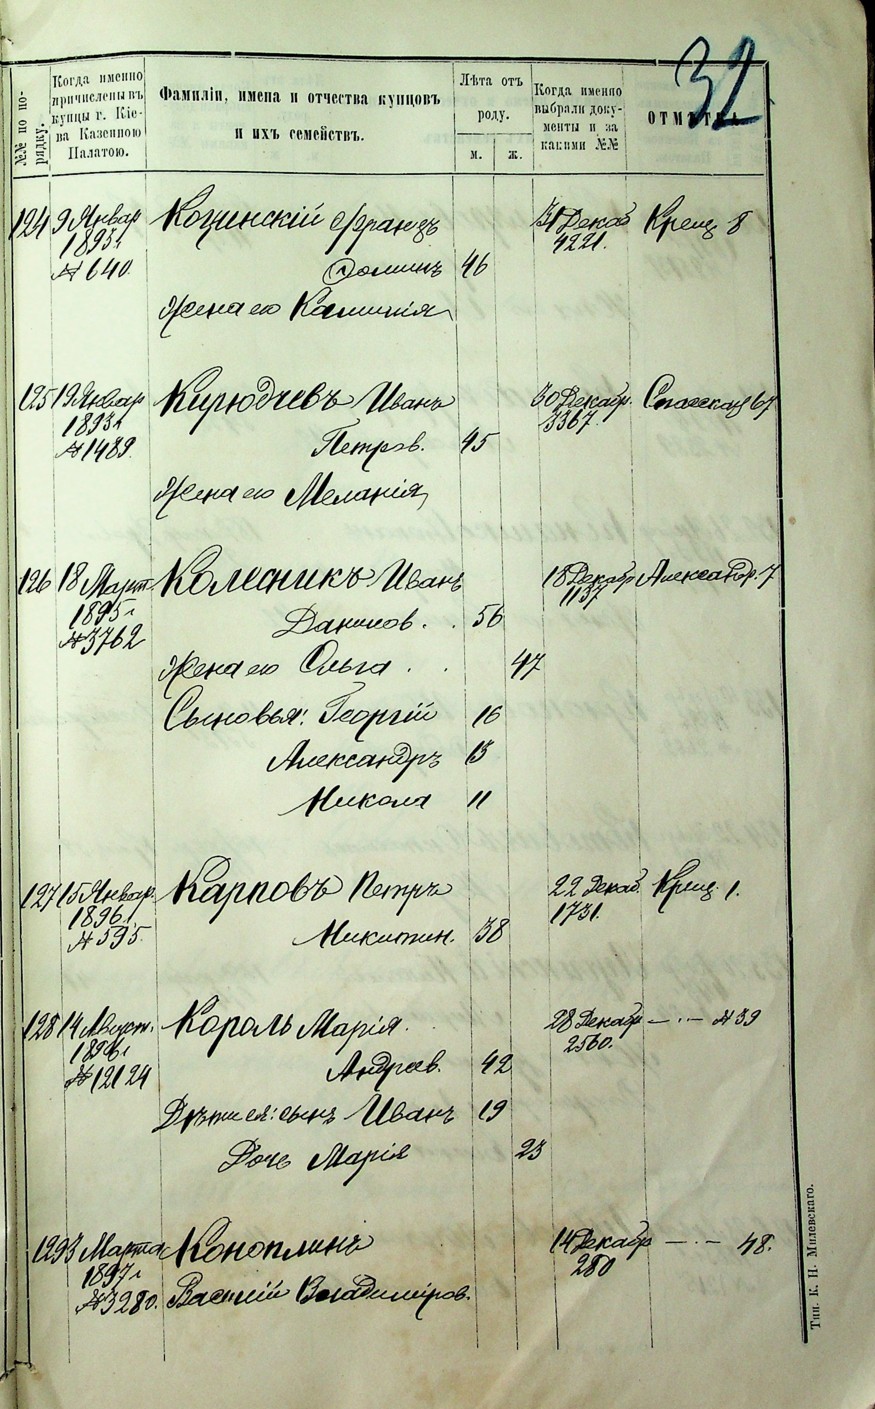 32
№№ по по-
рядку.
Когда именно
причислены въ
купцы г. Кіе-
ва Казенною
Палатою.
Фамиліи, имена и отчества купцовъ
и ихъ семействъ.
Лѣта отъ
роду.
м.
ж.
Когда именно
выбрали доку-
менты и за
какими №№
ОТМѢТКА.
124 9 Январ Франць 31 Декаб Крещ 8
1893г 4221.
№ 640. 46
Жена его
125 19 Январ Кирюдчевъ Иванъ 30 Декабр. Спасская 67
1893г 3367.
№ 1489. Петров. 45
Жена его Меланія
126 18 Март Колесникъ Иванъ 18 Декабр Александр. 7
1895г 1137
№ 3762 Данилов. . 56
Жена его Ольга . . 47
Сыновья: Георгій 16
Александръ 13
Никола 11
127 15 Январ. Карповъ Петръ 22 Декаб. Крещ. 1.
1896г 1731.
№ 595. Никитин. 38
128 14 Август. Король Марія. 28 Декабр — · — № 39
1896г 2560.
№ 12124 Андреев. 42
Дѣти ея: сынъ Иванъ 19
Дочь Марія 23
129 3 Марта Коноплинъ 14 Декабр — · — 48.
1897г 280
№ 3280. Василій Владиміров.
Тип. К. Н. Милевскаго.